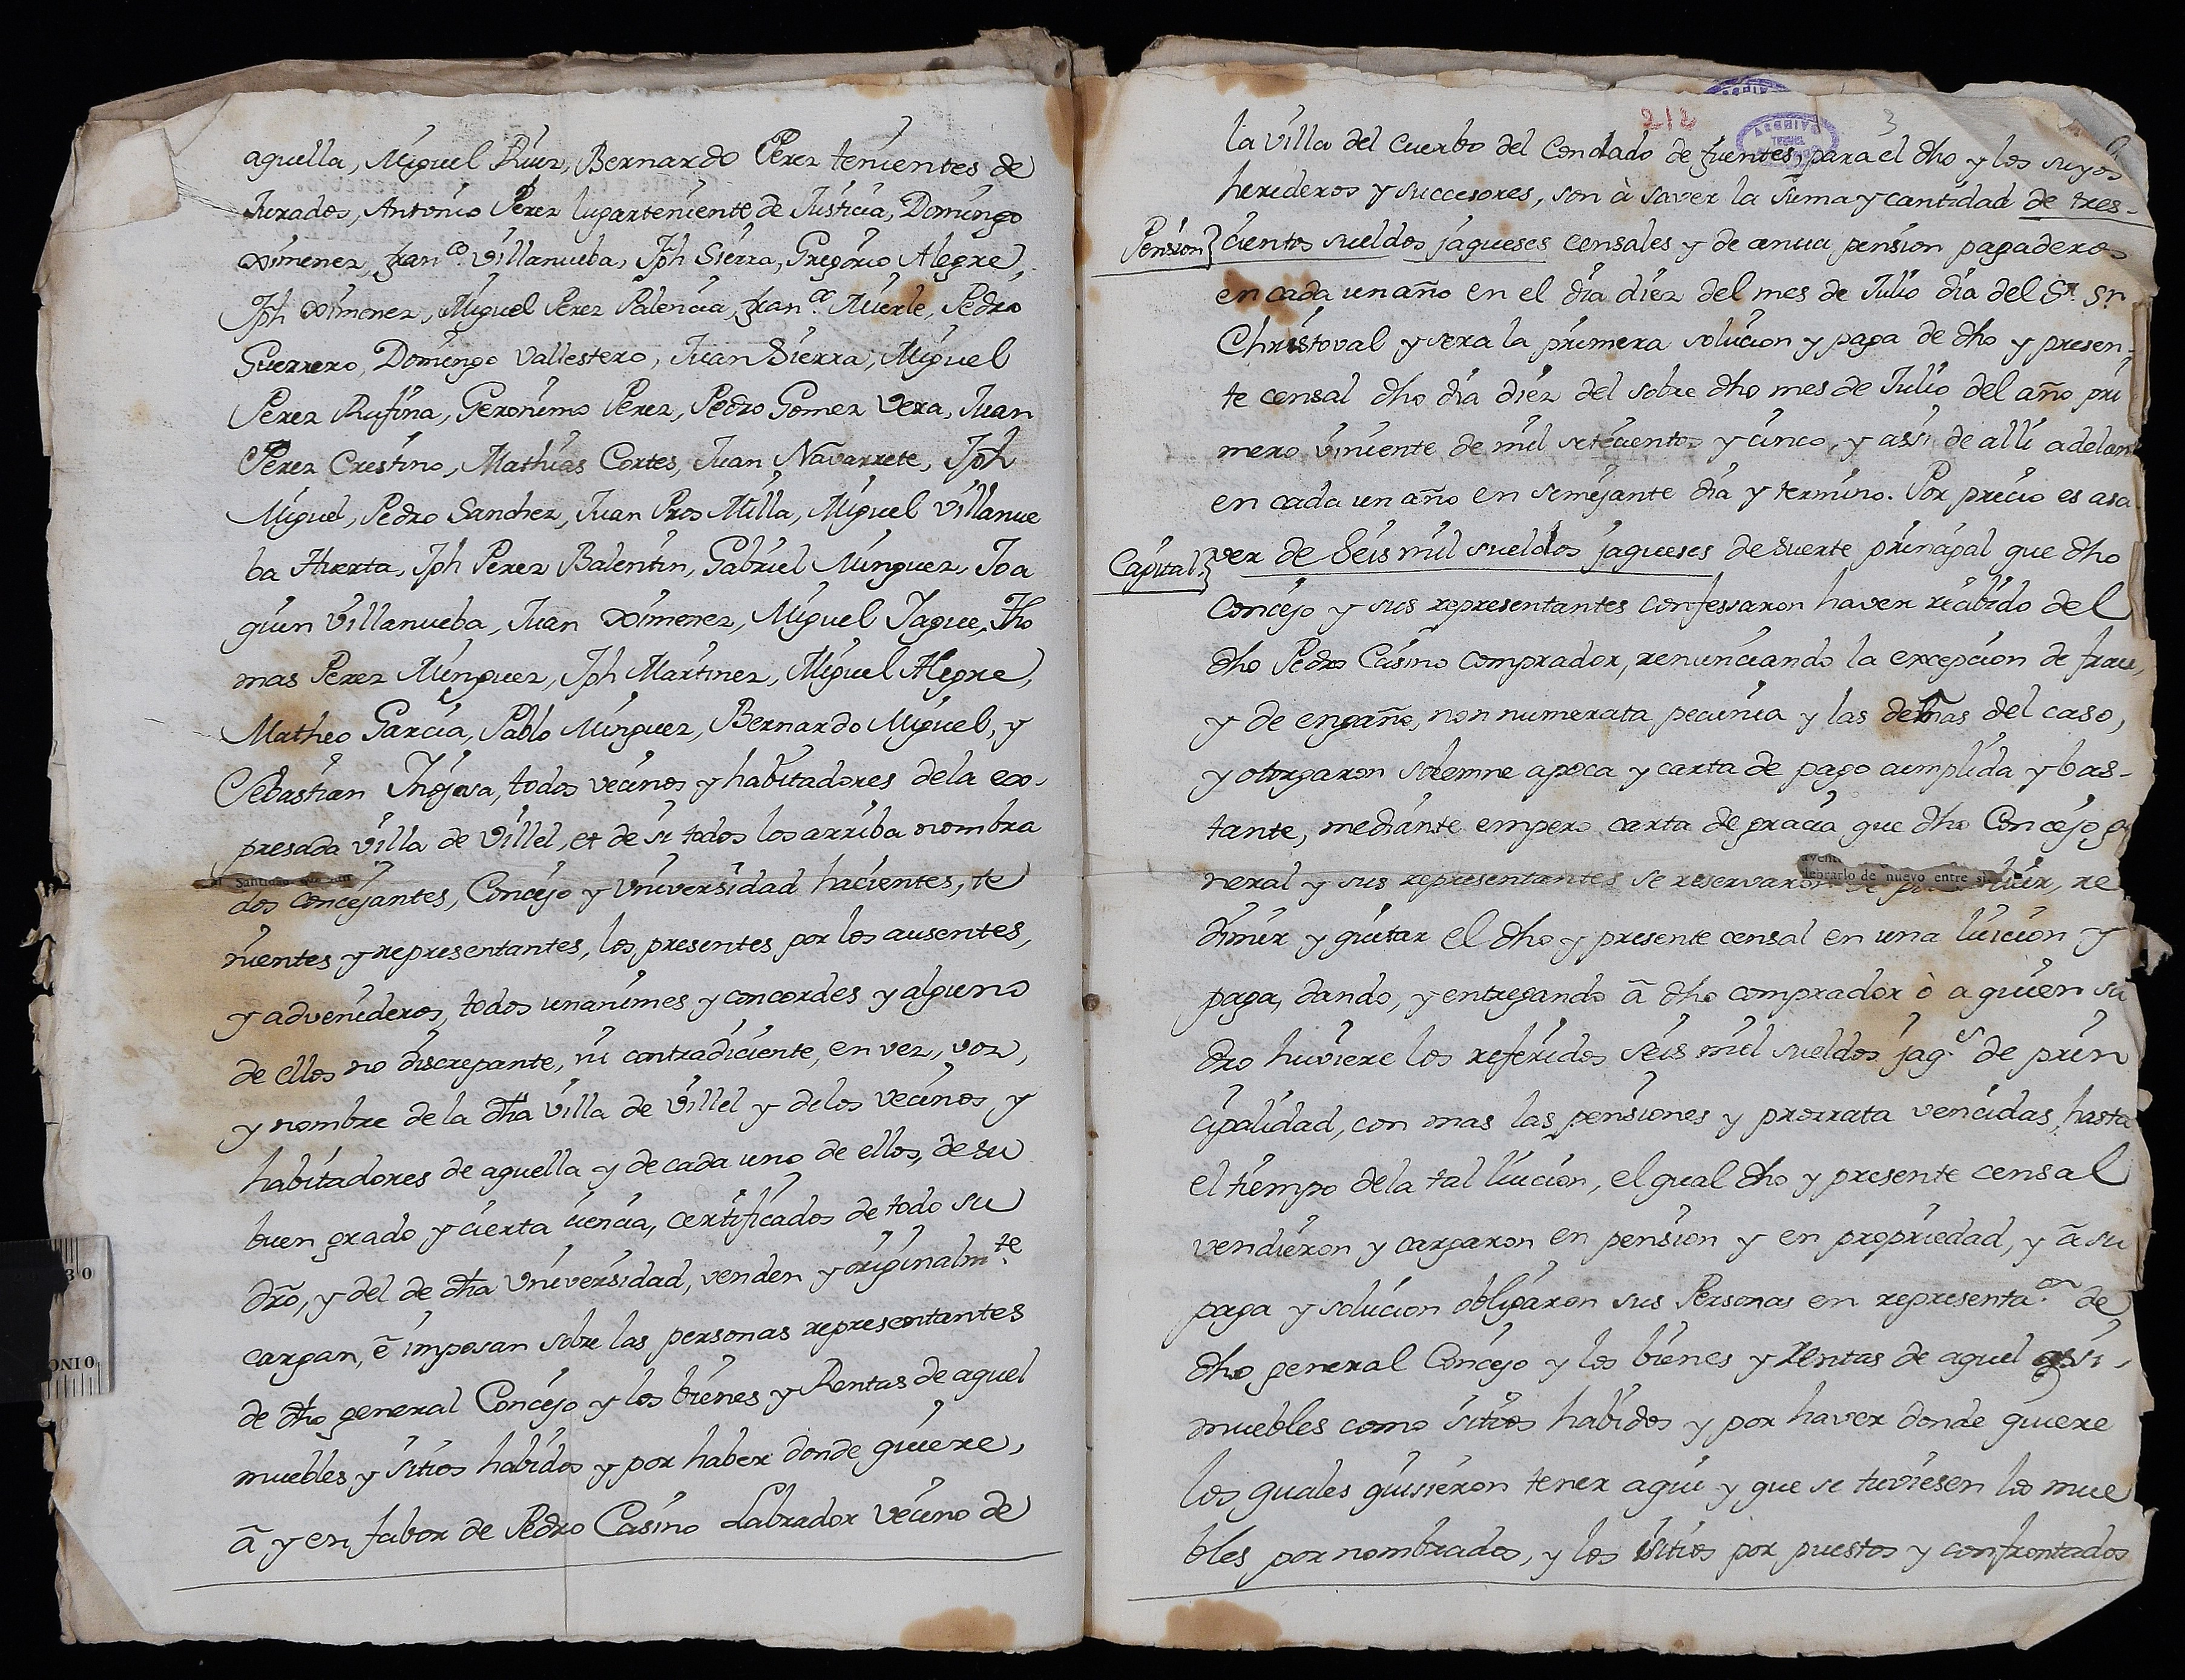 aquella, Miguel Ruiz, Bernardo Perez tenientes de
Jurados, Antonio Perez lugarteniente de Justicia, Domingo
Ximenez, franco. Villanueba, Jph Sierra, Gregorio Alegre,
Jph Ximenez, Miguel Perez Palencia, franco. Muerle, Pedro
Guerrero, Domingo Vallestero, Juan Sierra, Miguel
Perez Rufina, Geronimo Perez, Pedro Gomez Vera, Juan
Perez Crestino, Mathias Cortes, Juan Navarrete, Jph
Miguel, Pedro Sanchez, Juan Pros Milla, Miguel Villanue
ba Huerta, Jph Perez Balentin, Gabriel Minguez, Joa
quin Villanueba, Juan Ximenez, Miguel Jague, Tho
mas Perez Minguez, Jph Martinez, Miguel Alegre,
Matheo Garcia, Pablo Minguez, Bernardo Miguel, y
Sebastian todos vecinos y habitadores dela ex-
presada Villa de Villel, et de si todos los arriba nombra
dos concejantes, Concejo y Universidad hacientes, te
nientes y representantes, los presentes por los ausentes,
y advenideros, todos unanimes y concordes y alguno
de ellos no discrepante, ni contradiciente, en vez, voz,
y nombre de la dha Villa de Villel y delos vecinos y
habitadores de aquella y de cada uno de ellos, de su
buen grado y cierta ciencia, certificados de todo su
dro, y del de dha Universidad, venden y originalmte.
cargan, è imposan sobre las personas representantes
de dho general Concejo y los bienes y Rentas de aquel
muebles y sitios habidos y por haber donde quiere,
à y en fabor de Pedro Casino Labrador vecino de
212
3
la Villa del Cuerbo del Condado de fuentes, para el dho y los suyos
herideros y successores, son à saver la suma y cantidad de tres-
Pension} cientos sueldos jaqueses censales y de anua pension pagaderos
en cada un año en el dia diez del mes de Julio dia del Sr. Sn
Christoval y sera la primera solucion y paga de dho y presen-
te censal dho dia diez del sobre dho mes de Julio del año pri
mero viniente de mil setecientos y cinco, y assi de alli adelan
en cada un año en semejante dia y termino. Por precio es asa
Capital} ver de Seis mil sueldos jaqueses de suerte principal que dho
Concejo y sus representantes confessaron haver recibido del
dho Pedro Casino comprador, renunciando la excepcion de frau,
y de engaño, non numerata pecunia y las demas del caso,
y otorgaron solemne apoca y carta de pago cumplida y bas-
tante, mediante empero carta de gracia que dho Concejo ge
neral y sus representantes se reservaron luir, re
dimir y quitar el dho y presente censal en una luicion y
paga, dando, y entregando à dho comprador ò a quien su
dro huviere los referidos seis mil sueldos jags. de prin
cipalidad, con mas las pensiones y prorrata vencidas, hasta
el tiempo dela tal luicion, el qual dho y presente censal
vendieron y cargaron en pension y en propriedad, y à su
paga y solucion obligaron sus Personas en representaon. de
dho general Concejo y los bienes y Rentas de aquel assi,
muebles como sitios habidos y por haver donde quiere
los quales quisieron tener aqui y que se tuviesen los mue
bles por nombrados, y los sitios por puestos y confrontados